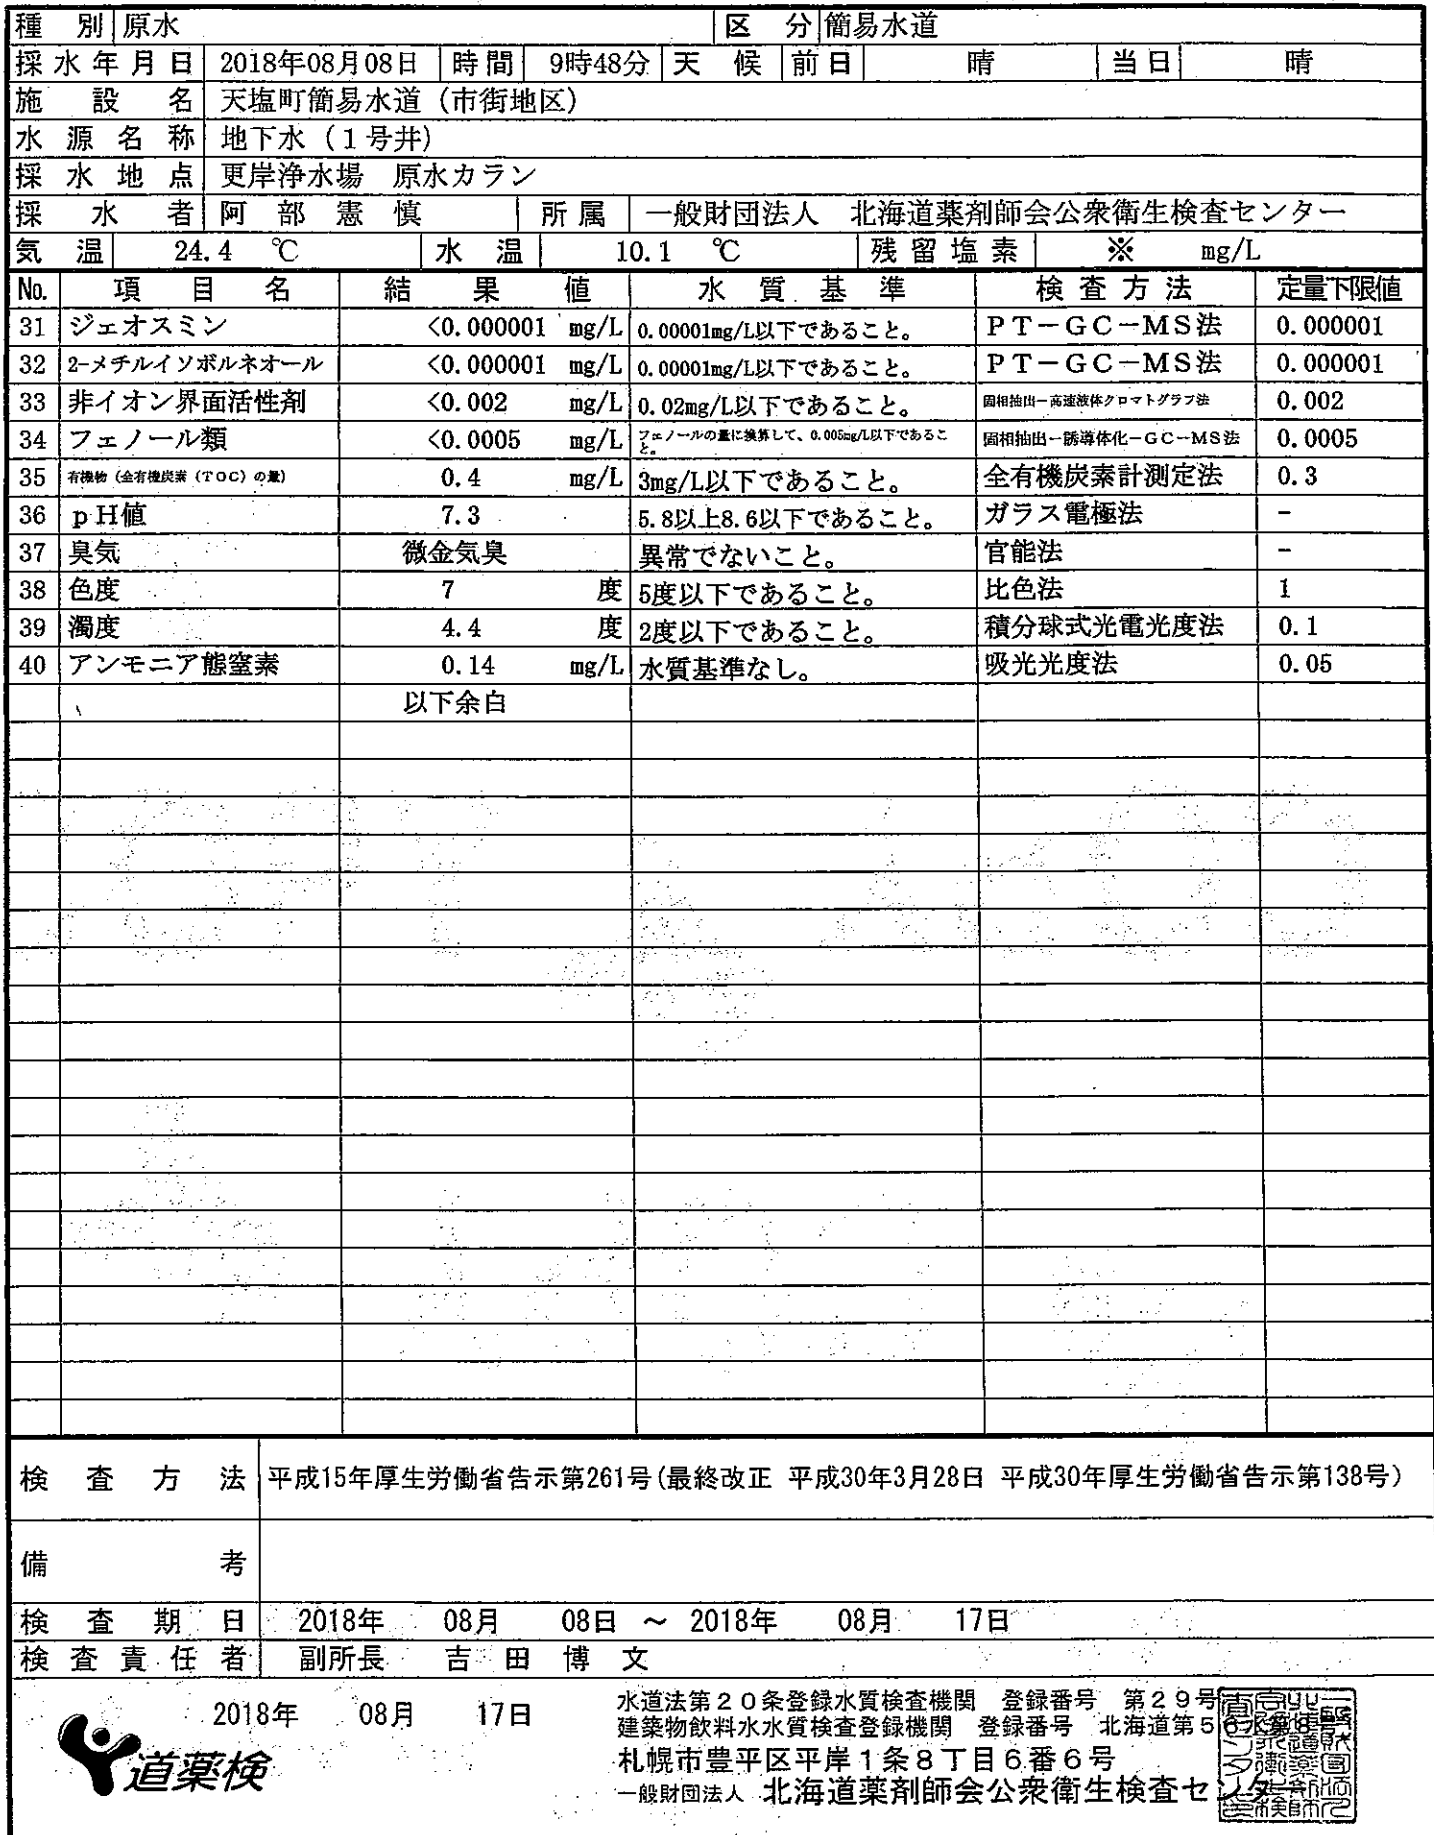 種別 原水 区分 簡易水道
採水年月日 2018年08月08日 時間 9時48分 天候 前日 晴 当日 晴
施設名 天塩町簡易水道（市街地区）
水源名称 地下水（1号井）
採水地点 更岸浄水場 原水カラン
採水者 阿部憲慎 所属 一般財団法人 北海道薬剤師会公衆衛生検査センター
気温 24.4 ℃ 水温 10.1 ℃ 残留塩素 ※ mg/L
No. 項目名 結果値 水質基準 検査方法 定量下限値
31 ジェオスミン <0.000001 mg/L 0.00001mg/L以下であること。 PT－GC－MS法 0.000001
32 2-メチルイソボルネオール <0.000001 mg/L 0.00001mg/L以下であること。 PT－GC－MS法 0.000001
33 非イオン界面活性剤 <0.002 mg/L 0.02mg/L以下であること。 固相抽出－高速液体クロマトグラフ法 0.002
34 フェノール類 <0.0005 mg/L フェノールの量に換算して、0.005mg/L以下であること。 固相抽出－誘導体化－GC－MS法 0.0005
35 有機物（全有機炭素（TOC）の量） 0.4 mg/L 3mg/L以下であること。 全有機炭素計測定法 0.3
36 pH値 7.3 5.8以上8.6以下であること。 ガラス電極法 －
37 臭気 微金気臭 異常でないこと。 官能法 －
38 色度 7 度 5度以下であること。 比色法 1
39 濁度 4.4 度 2度以下であること。 積分球式光電光度法 0.1
40 アンモニア態窒素 0.14 mg/L 水質基準なし。 吸光光度法 0.05
以下余白
検査方法 平成15年厚生労働省告示第261号(最終改正 平成30年3月28日 平成30年厚生労働省告示第138号)
備考
検査期日 2018年 08月 08日 ～ 2018年 08月 17日
検査責任者 副所長 吉田博文
2018年 08月 17日
水道法第20条登録水質検査機関 登録番号 第29号
建築物飲料水水質検査登録機関 登録番号 北海道第56水第8号
札幌市豊平区平岸1条8丁目6番6号
一般財団法人 北海道薬剤師会公衆衛生検査センター
道薬検